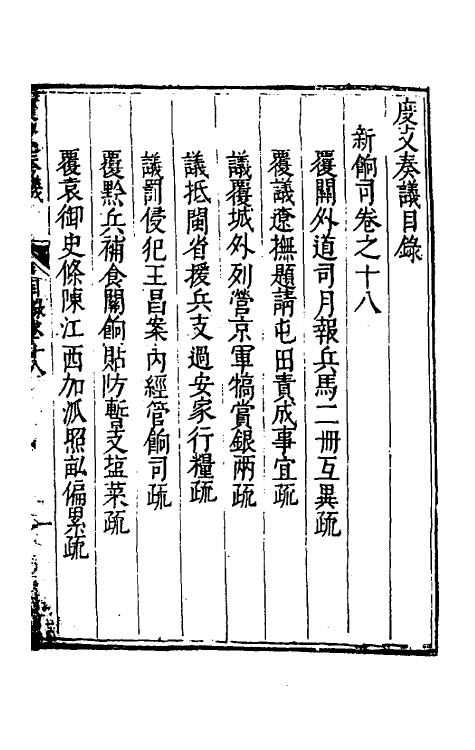 度支奏議目錄
新餉司卷之十八
覆關外道司月報兵馬二冊互異疏
覆議遼撫題請屯田責成事宜疏
議覆城外列營京軍犒賞銀兩疏
議抵閩省援兵支過安家行糧疏
議罰侵犯王昌案內經管餉司疏
覆黔兵補食關餉貼防暫支塩菜疏
覆袁御史條陳江西加派照畝偏累疏